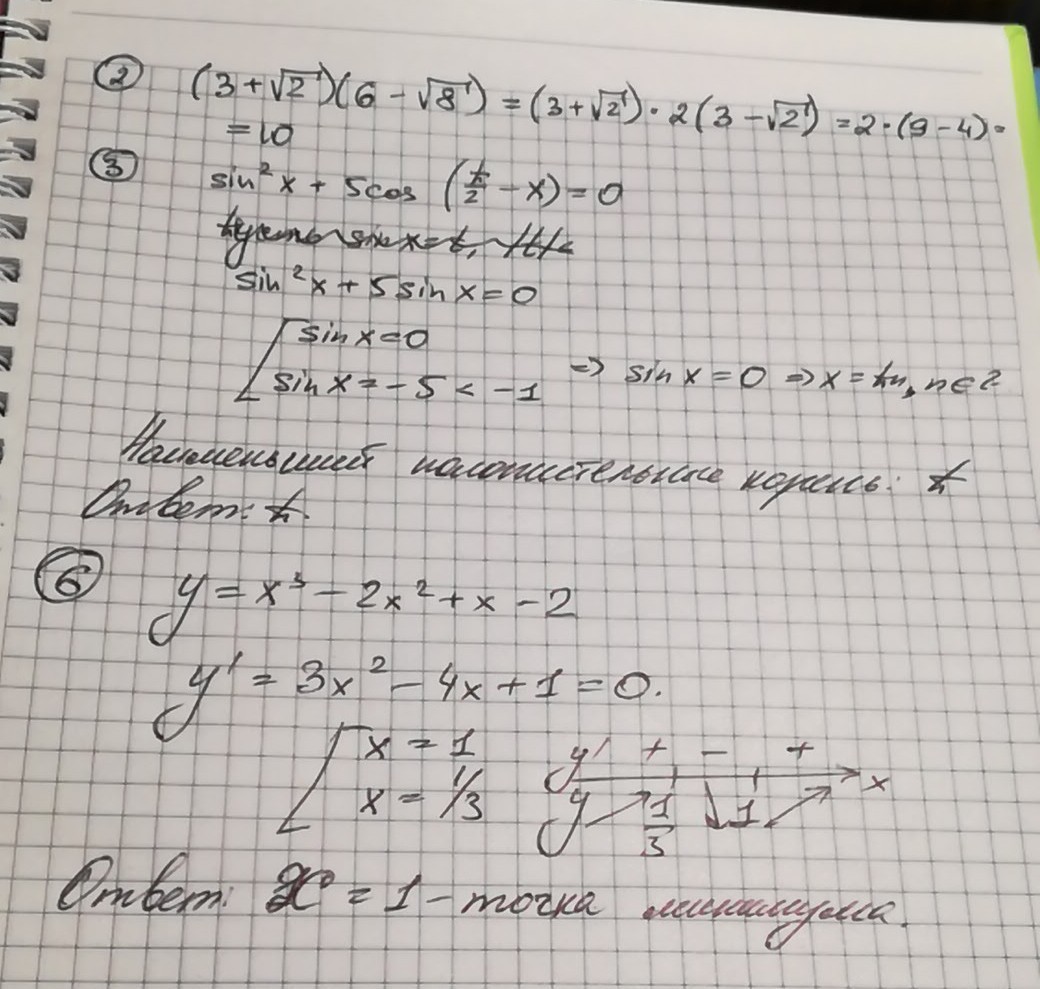 ② (3+√2)(6-√8) = (3+√2)·2(3-√2) = 2·(9-4) =
= 10
③ sin²x + 5cos (π/2 - x) = 0
sin²x + 5 sin x = 0
sin x = 0
sin x = -5 < -1 => sin x = 0 => x = πn, n ∈ Z
Наименьший положительные корень: π
Ответ: π.
⑥ y = x³ - 2x² + x - 2
y' = 3x² - 4x + 1 = 0.
x = 1 y' + - + x
x = 1/3 y 1/3 1
Ответ: x = 1 - точка минимума.